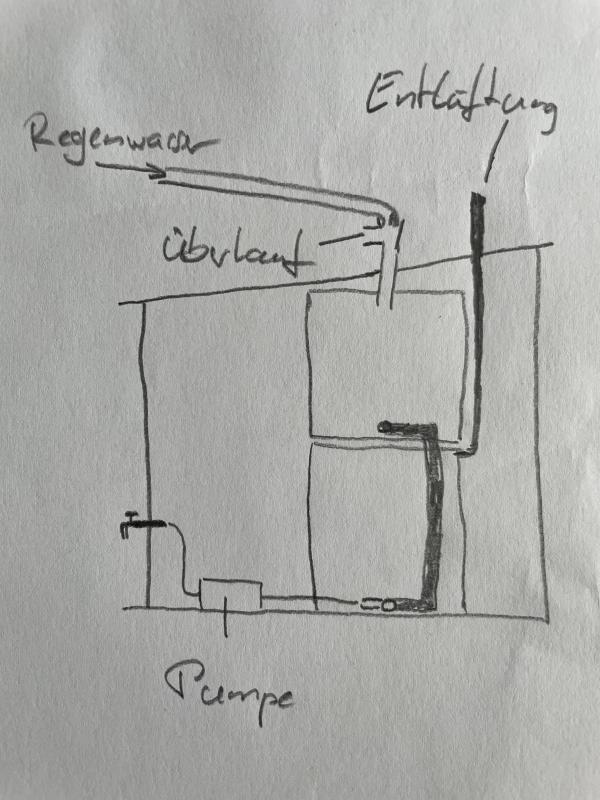 Entlüftung
Regenwasser
Überlauf
Pumpe